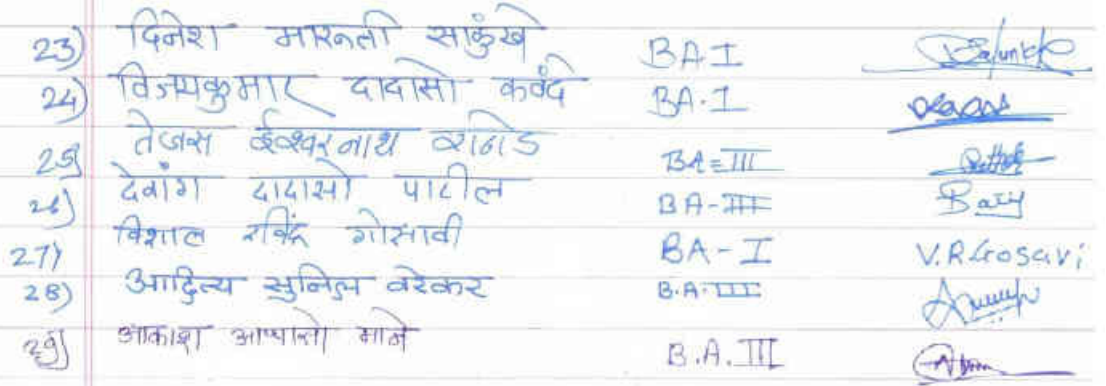 23) दिनेश मारुती साळुंखे BA.I Salunkhe
24) विजयकुमार दादासो कवंदे BA.I
25) तेजस ईश्वरनाथ BA-III
26) देवांग दादासो पाटील BA-III
27) विशाल रविंद्र गोसावी BA-I V.R.Gosavi
28) आदित्य सुनिल वरेकर B.A.III
29) आकाश आप्पासो माने B.A.III